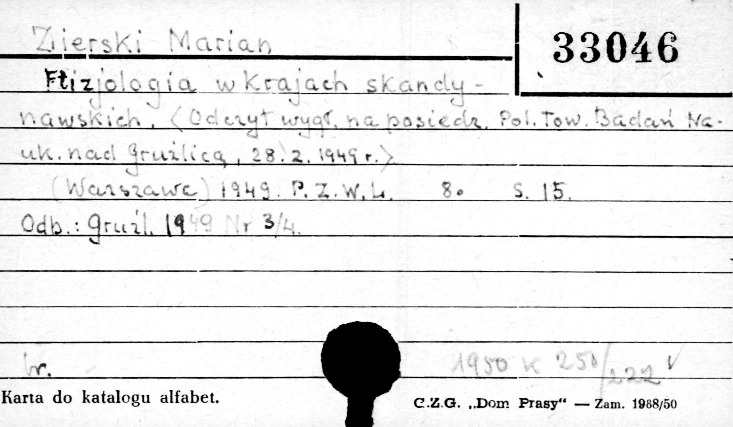 Zierski Marian
33046
Ftizjologia w krajach skandy-
nawskich. (Odczyt wygł. na posiedz. Pol. Tow. Badań Na-
uk. nad Gruźlicą, 28.2.1949 r.)
(Warszawa) 1949. P.Z.W.L. 8° S. 15.
Odb.: Gruźl. 1949 Nr 3/4.
br.
1950 K 250/222
Karta do katalogu alfabet.
C.Z.G. „Dom Prasy“ — Zam. 1988/50